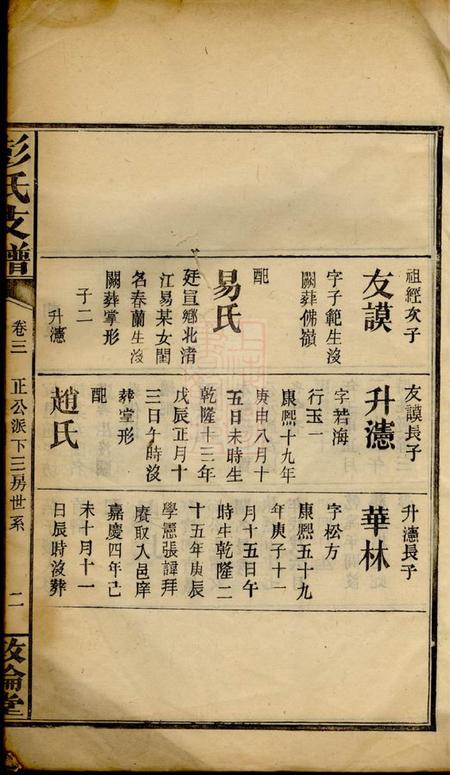 祖經次子
友謨
字子範生沒
闕葬佛嶺
配
易氏
廷宣鄉北渚
江易某女閨
名春蘭生沒
闕葬掌形
子二
升濍
友謨長子
升濍
字若海
行玉一
康熙十九年
庚申八月十
五日未時生
乾隆十三年
戊辰正月十
三日午時沒
葬堂形
配
趙氏
升濍長子
華林
字松方
康熙五十九
年庚子十一
月十五日午
時生乾隆二
十五年庚辰
學憲張諱拜
賡取入邑庠
嘉慶四年己
未十月十一
日辰時沒葬
彭氏支譜
卷三
正公派下三房世系
二
敦倫堂